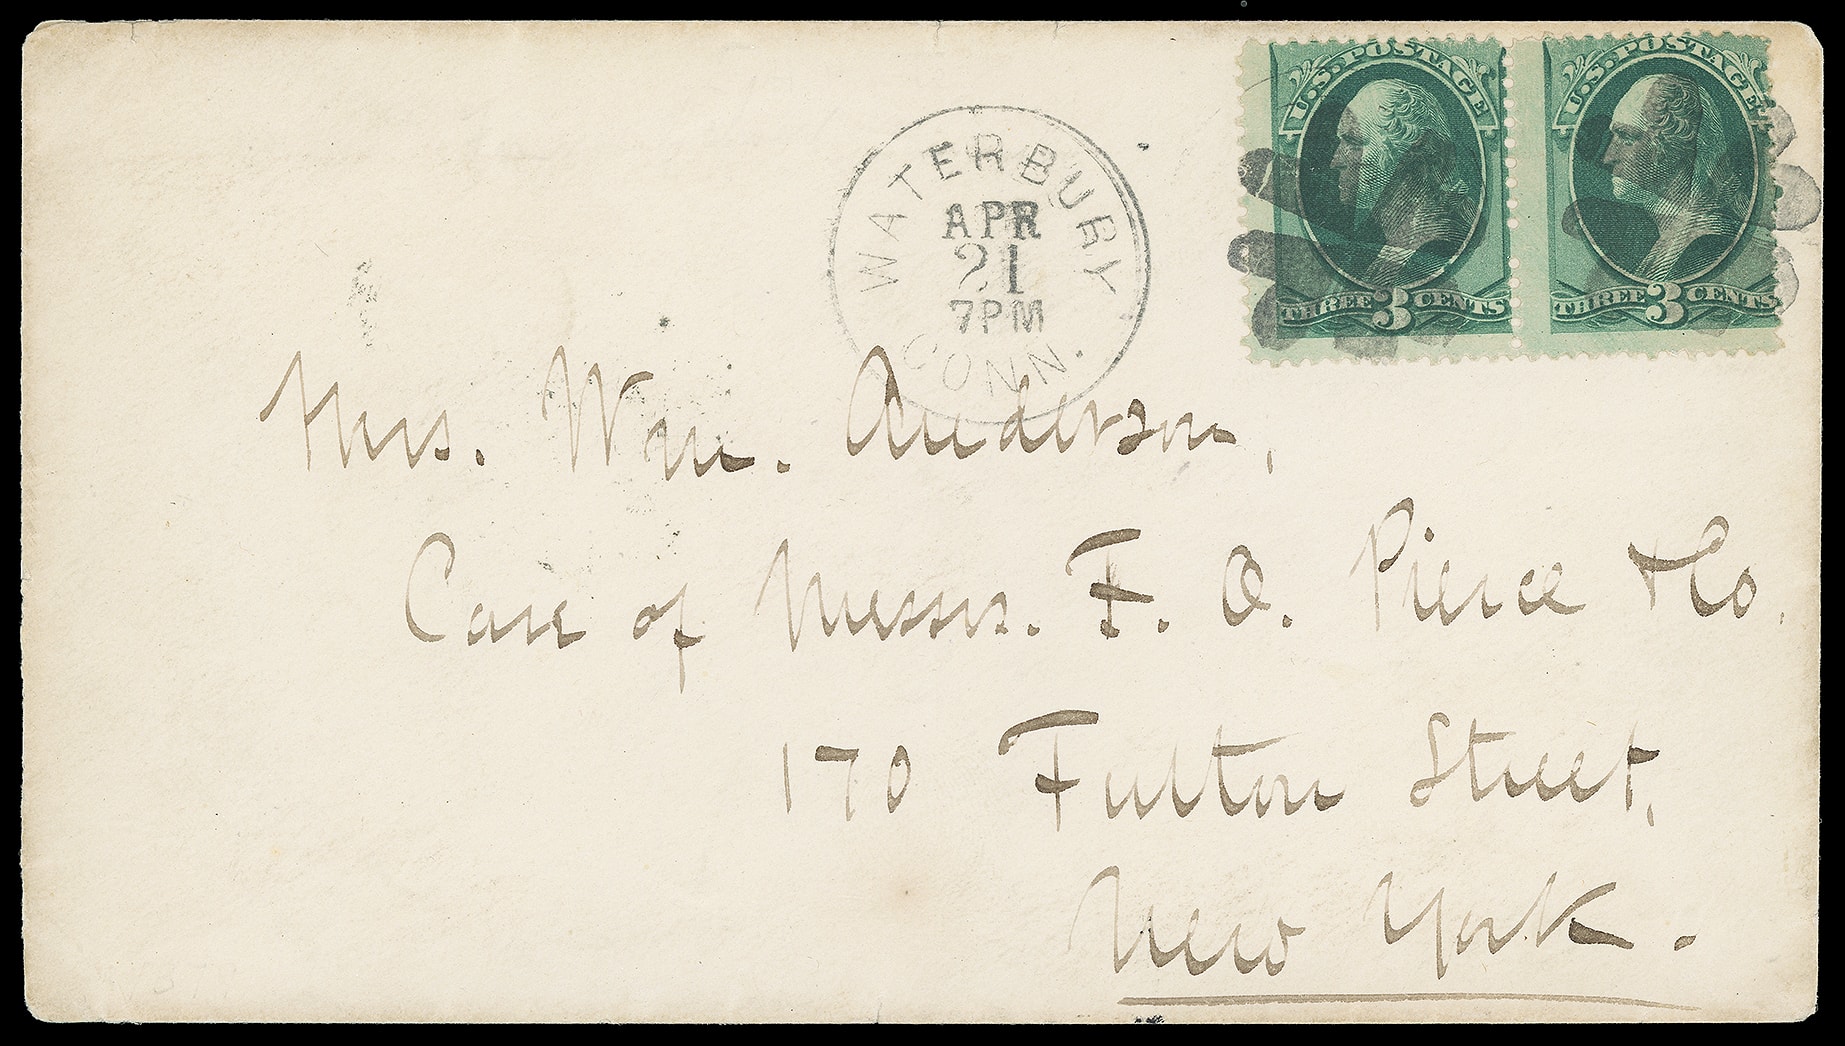 U.S. POSTAGE
THREE 3 CENTS
U.S. POSTAGE
THREE 3 CENTS
WATERBURY
APR
21
7PM
CONN.
Mrs. Wm. Anderson,
Care of Messrs. F. O. Pierce & Co.
170 Fulton Street,
New York.